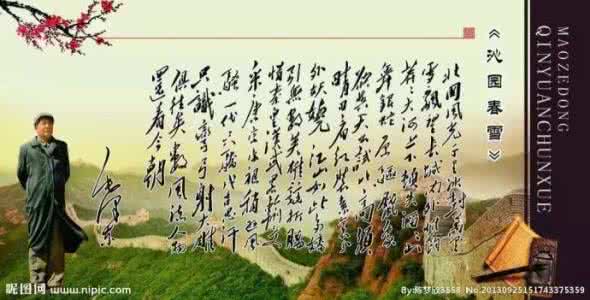 MAOZEDONG
QINYUANCHUNXUE
《沁园春雪》
北国风光千里冰封万里
雪飘望长城内外惟余
莽莽大河上下顿失滔滔山
舞银蛇原驰蜡象
欲与天公试比高须
晴日看红装素裹分
外妖娆江山如此多娇
引无数英雄竞折腰
惜秦皇汉武略输文
采唐宗宋祖稍逊风
骚一代天骄成吉思汗
只识弯弓射大雕
俱往矣数风流人物
还看今朝
毛泽东
昵图网 www.nipic.com